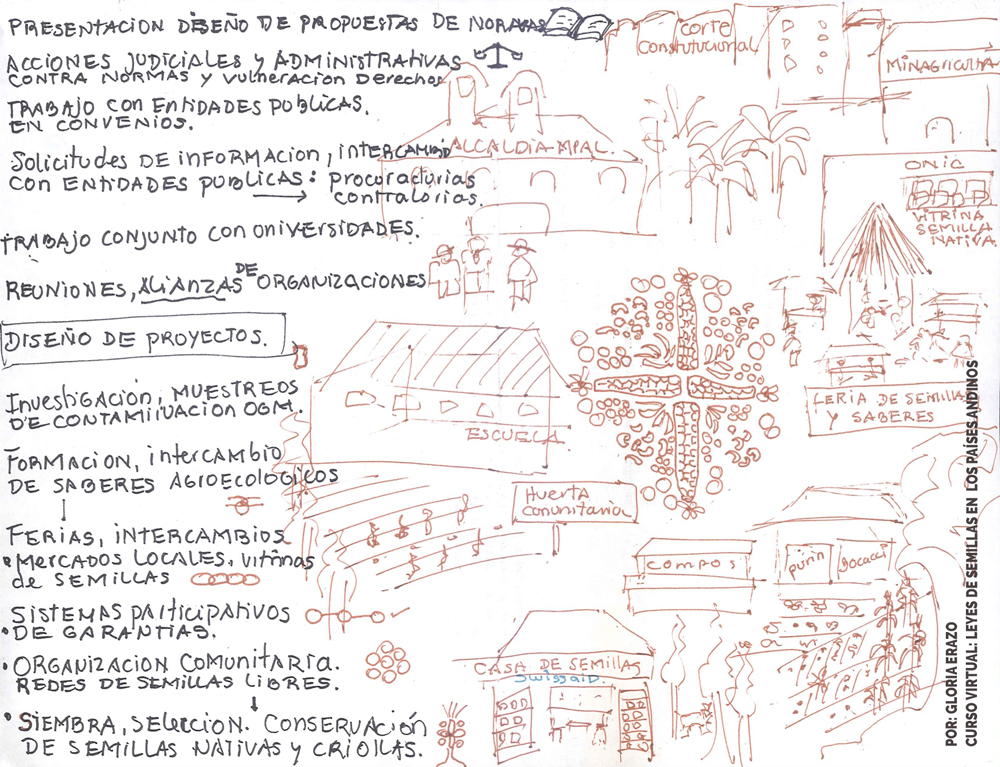 PRESENTACION DISEÑO DE PROPUESTAS DE NORMAS
ACCIONES JUDICIALES y ADMINISTRATIVAS
CONTRA NORMAS y vulneracion Derechos
TRABAJO con Entidades PUBLICAS.
EN CONVENIOS.
Solicitudes DE INFORMACION, INTERCAMBIO
CON ENTIDADES PUBLICAS: procuradurias
contralorias.
TRABAJO CONJUNTO CON UNIVERSIDADES.
REUNIONES, ALIANZAS DE ORGANIZACIONES
DISEÑO DE PROYECTOS.
Investigación, MUESTREOS
DE CONTAMINACION OGM.
FORMACION, intercambio
DE SABERES AGROECOLOGICOS
FERIAS, INTERCAMBIOS
• MERCADOS LOCALES, vitrinas
de SEMILLAS
SISTEMAS PARTICIPATIVOS
• DE GARANTIAS.
• ORGANIZACION COMUNITARIA.
REDES DE SEMILLAS LIBRES.
• SIEMBRA, SELECCION. CONSERVACIÓN
DE SEMILLAS NATIVAS y CRIOLLAS.
corte
Constitucional
MINAGRICULTURA
ALCALDIA MPAL.
ONIC
VITRINA
SEMILLA
NATIVA.
ESCUELA
FERIA DE SEMILLAS
y SABERES
Huerta
comunitaria
COMPOS
purin
bocacci
CASA DE SEMILLAS
SWISSAID.
POR: GLORIA ERAZO
CURSO VIRTUAL: LEYES DE SEMILLAS EN LOS PAÍSES ANDINOS